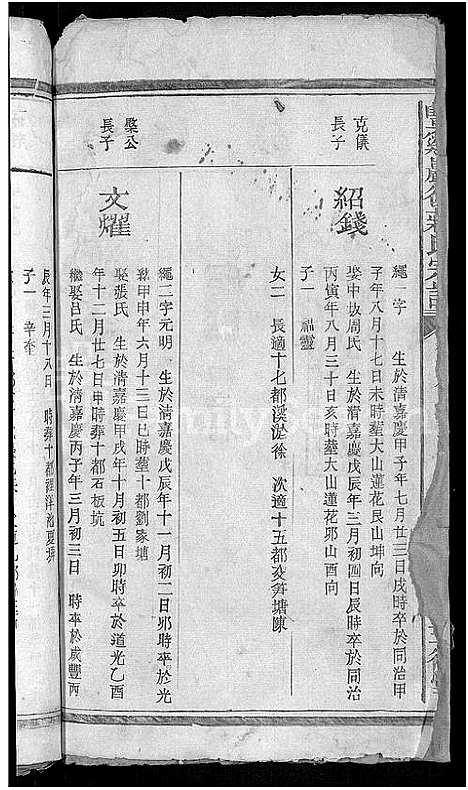 克儀
長子
紹錢
繩 字 生於清嘉慶甲子年七月廿三日戌時卒於同治甲
子年八月十七日未時塟大山蓮花艮山坤向
娶中坂周氏 生於清嘉慶戊辰年三月初四日辰時卒於同治
丙寅年八月三十日亥時塟大山蓮花夘山酉向
子一 福靈
女二 長適十七都溪淤徐 次適十五都笅笋塘陳
槩公
長子
文燿
繩二字元明 生於清嘉慶戊辰年十一月初二日夘時卒於光
緒甲申年六月十三日巳時塟十都劉家塘
娶張氏 生於清嘉慶甲戌年十月初五日卯時卒於道光乙酉
年十二月廿七日申時葬十都石板坑
繼娶呂氏 生於清嘉慶丙子年三月初三日 時卒於咸豐丙
辰年三月十八日 時葬十都裡洋
子一 辛